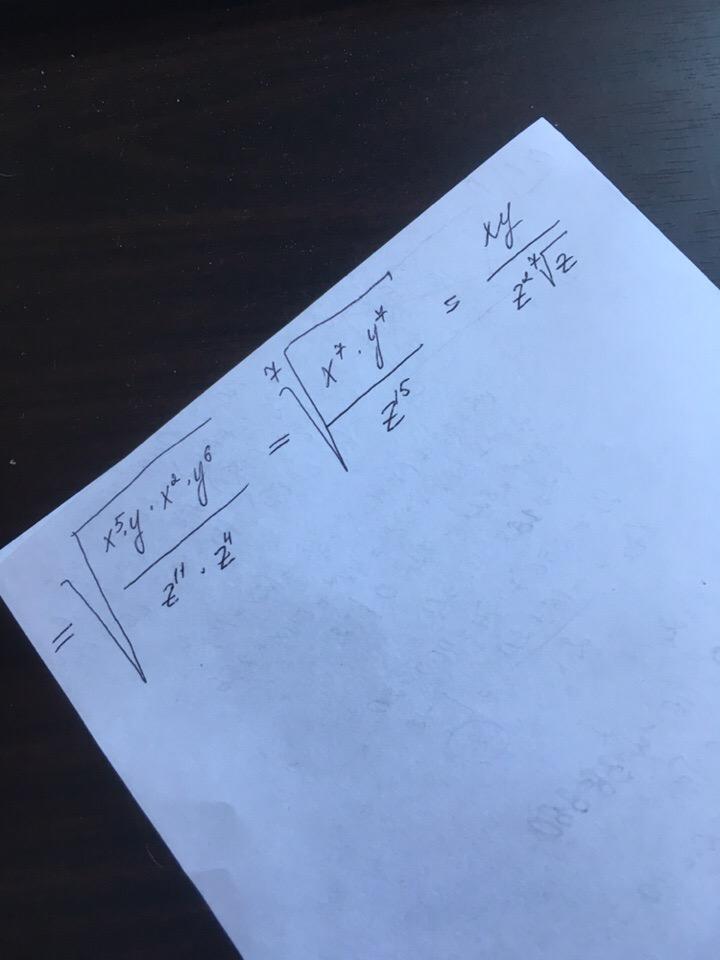 = √(x⁵·y·x²·y⁶ / z¹¹·z⁴) = ⁷√(x⁷·y⁷ / z¹⁵) = xy / z² ⁷√z